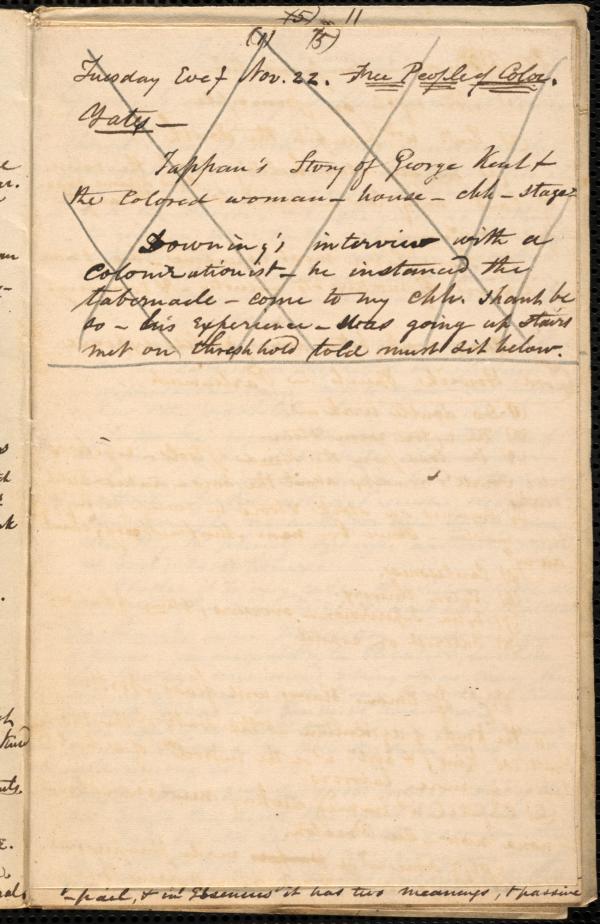 (5) 11
(1) (5)
Tuesday Eve, Nov. 22. Free People of Color.
Yates —
Tappan's Story of George Kent &
the Colored woman – house – chh – stage
Downing's interview with a
Colonizationist – he instanced the
tabernacle – come to my chh. shant be
so – his Experience – was going up stairs
met on threshhold told must sit below.
& in it has two meanings, & passive